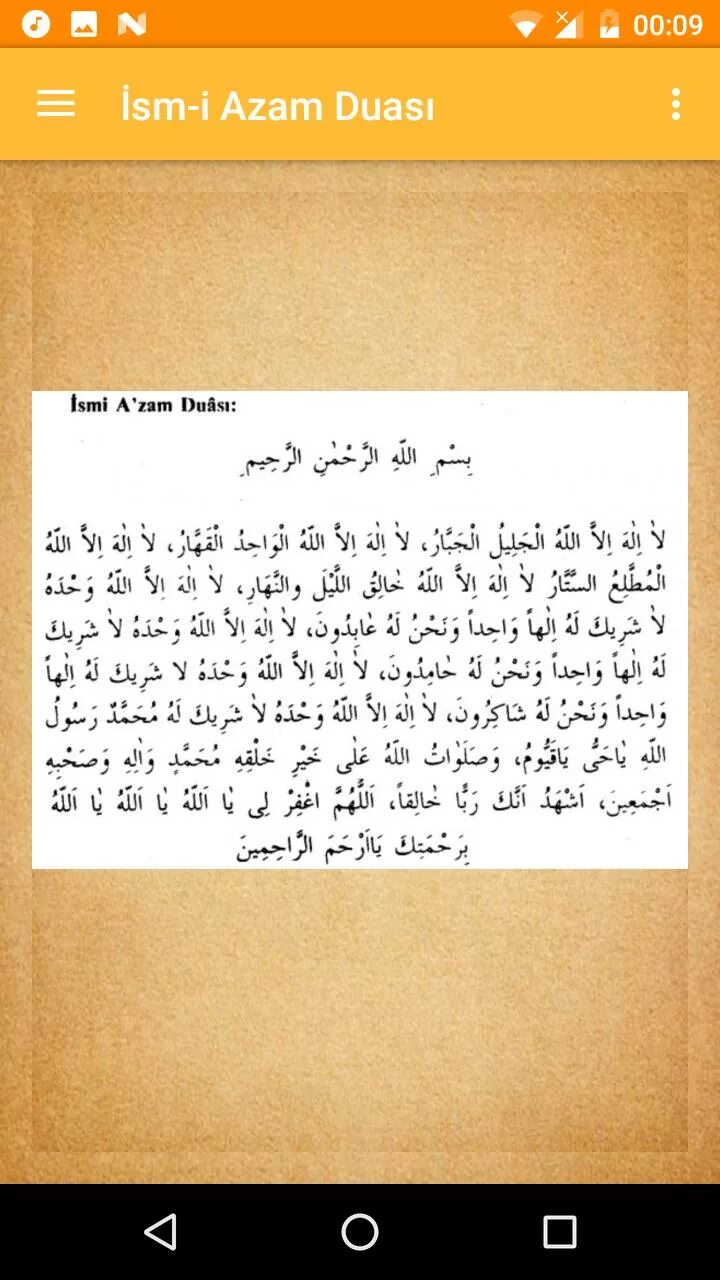 00:09
İsm-i Azam Duası
İsmi A'zam Duâsı:
بِسْمِ اللّٰهِ الرَّحْمٰنِ الرَّحِيمِ
لاٰ اِلٰهَ اِلاَّ اللّٰهُ الْجَلِيلُ الْجَبَّارُ، لاٰ اِلٰهَ اِلاَّ اللّٰهُ الْوَاحِدُ الْقَهَّارُ، لاٰ اِلٰهَ اِلاَّ اللّٰهُ
الْمُطَّلِعُ السَّتَّارُ لاٰ اِلٰهَ اِلاَّ اللّٰهُ خٰالِقُ اللَّيْلَ والنَّهَارِ، لاٰ اِلٰهَ اِلاَّ اللّٰهُ وَحْدَهُ
لاٰ شَرِيكَ لَهُ اِلٰهاً وَاحِداً وَنَحْنُ لَهُ عٰابِدُونَ، لاٰ اِلٰهَ اِلاَّ اللّٰهُ وَحْدَهُ لاٰ شَرِيكَ
لَهُ اِلٰهاً وَاحِداً وَنَحْنُ لَهُ حٰامِدُونَ، لاٰ اِلٰهَ اِلاَّ اللّٰهُ وَحْدَهُ لا شَرِيكَ لَهُ اِلٰهاً
وَاحِداً وَنَحْنُ لَهُ شَاكِرُونَ، لاٰ اِلٰهَ اِلاَّ اللّٰهُ وَحْدَهُ لاٰ شَرِيكَ لَهُ مُحَمَّدٌ رَسُولُ
اللّٰهِ يٰاحَىُّ يَاقَيُّومُ، وَصَلَوٰاتُ اللّٰهُ عَلٰى خَيْرِ خَلْقِهِ مُحَمَّدٍ وَاٰلِهِ وَصَحْبِهِ
اَجْمَعِينَ، اَشْهَدُ اَنَّكَ رَبًّا خٰالِقاً، اَللّٰهُمَّ اغْفِرْ لِى يٰا اَللّٰهُ يٰا اَللّٰهُ يٰا اَللّٰهُ
بِرَحْمَتِكَ يَااَرْحَمَ الرَّاحِمِينَ